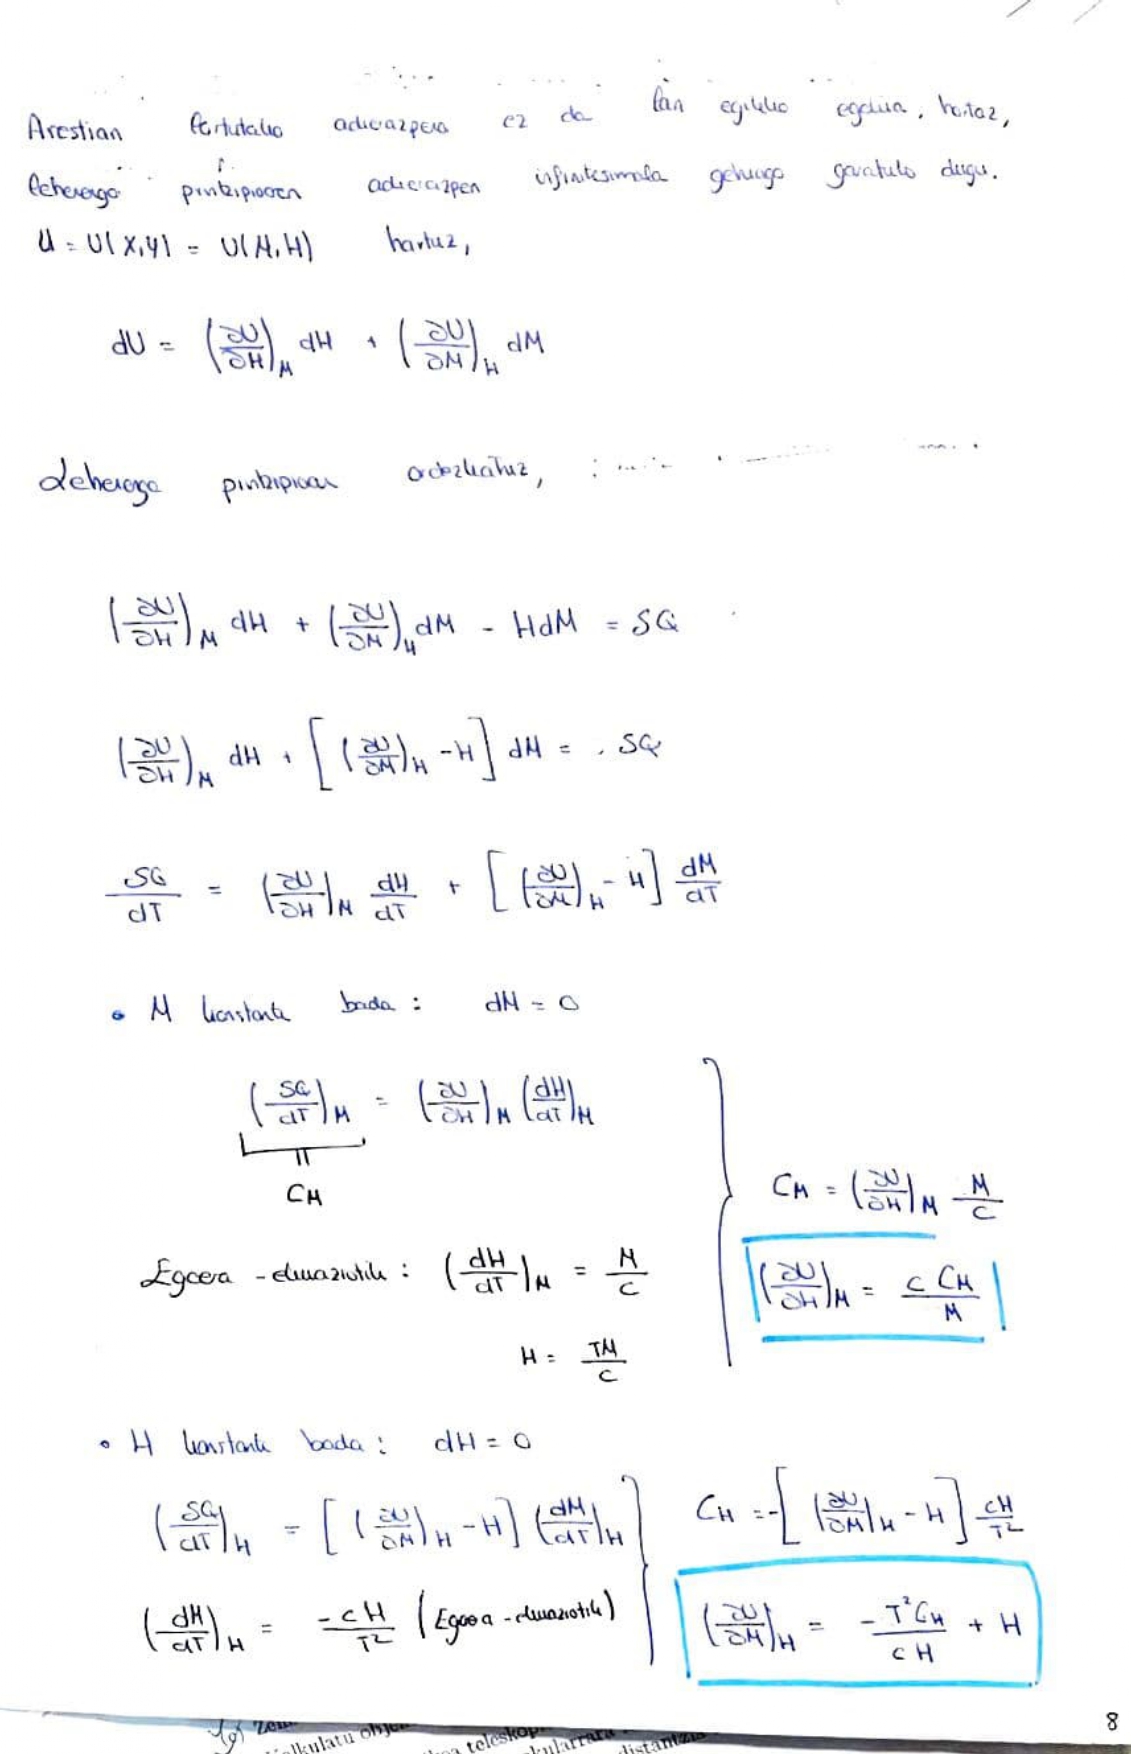 Arestian lortutako adierazpena ez da lan egiteko egokia, hortaz,
lehenengo printzipioaren adierazpen infinitesimala gehiago garatuko dugu.
U = U(X,Y) = U(M,H) hartuz,
dU = (∂U/∂H)_M dH + (∂U/∂M)_H dM
Lehenengo printzipioan ordezkatuz,
(∂U/∂H)_M dH + (∂U/∂M)_H dM - HdM = δQ
(∂U/∂H)_M dH + [(∂U/∂M)_H - H] dM = δQ
δQ/dT = (∂U/∂H)_M dH/dT + [(∂U/∂M)_H - H] dM/dT
• M konstante bada : dM = 0
(δQ/dT)_M = (∂U/∂H)_M (dH/dT)_M
C_M
Egoera-ekuaziotik : (dH/dT)_M = M/C
H = TM/C
C_M = (∂U/∂H)_M M/C
(∂U/∂H)_M = C C_M/M
• H konstante bada : dH = 0
(δQ/dT)_H = [(∂U/∂M)_H - H] (dM/dT)_H
(dM/dT)_H = -CH/T² (Egoera-ekuaziotik)
C_H = -[(∂U/∂M)_H - H] CH/T²
(∂U/∂M)_H = -T²C_H/CH + H
8
kulatu
teleskop
kularrara
distantzia